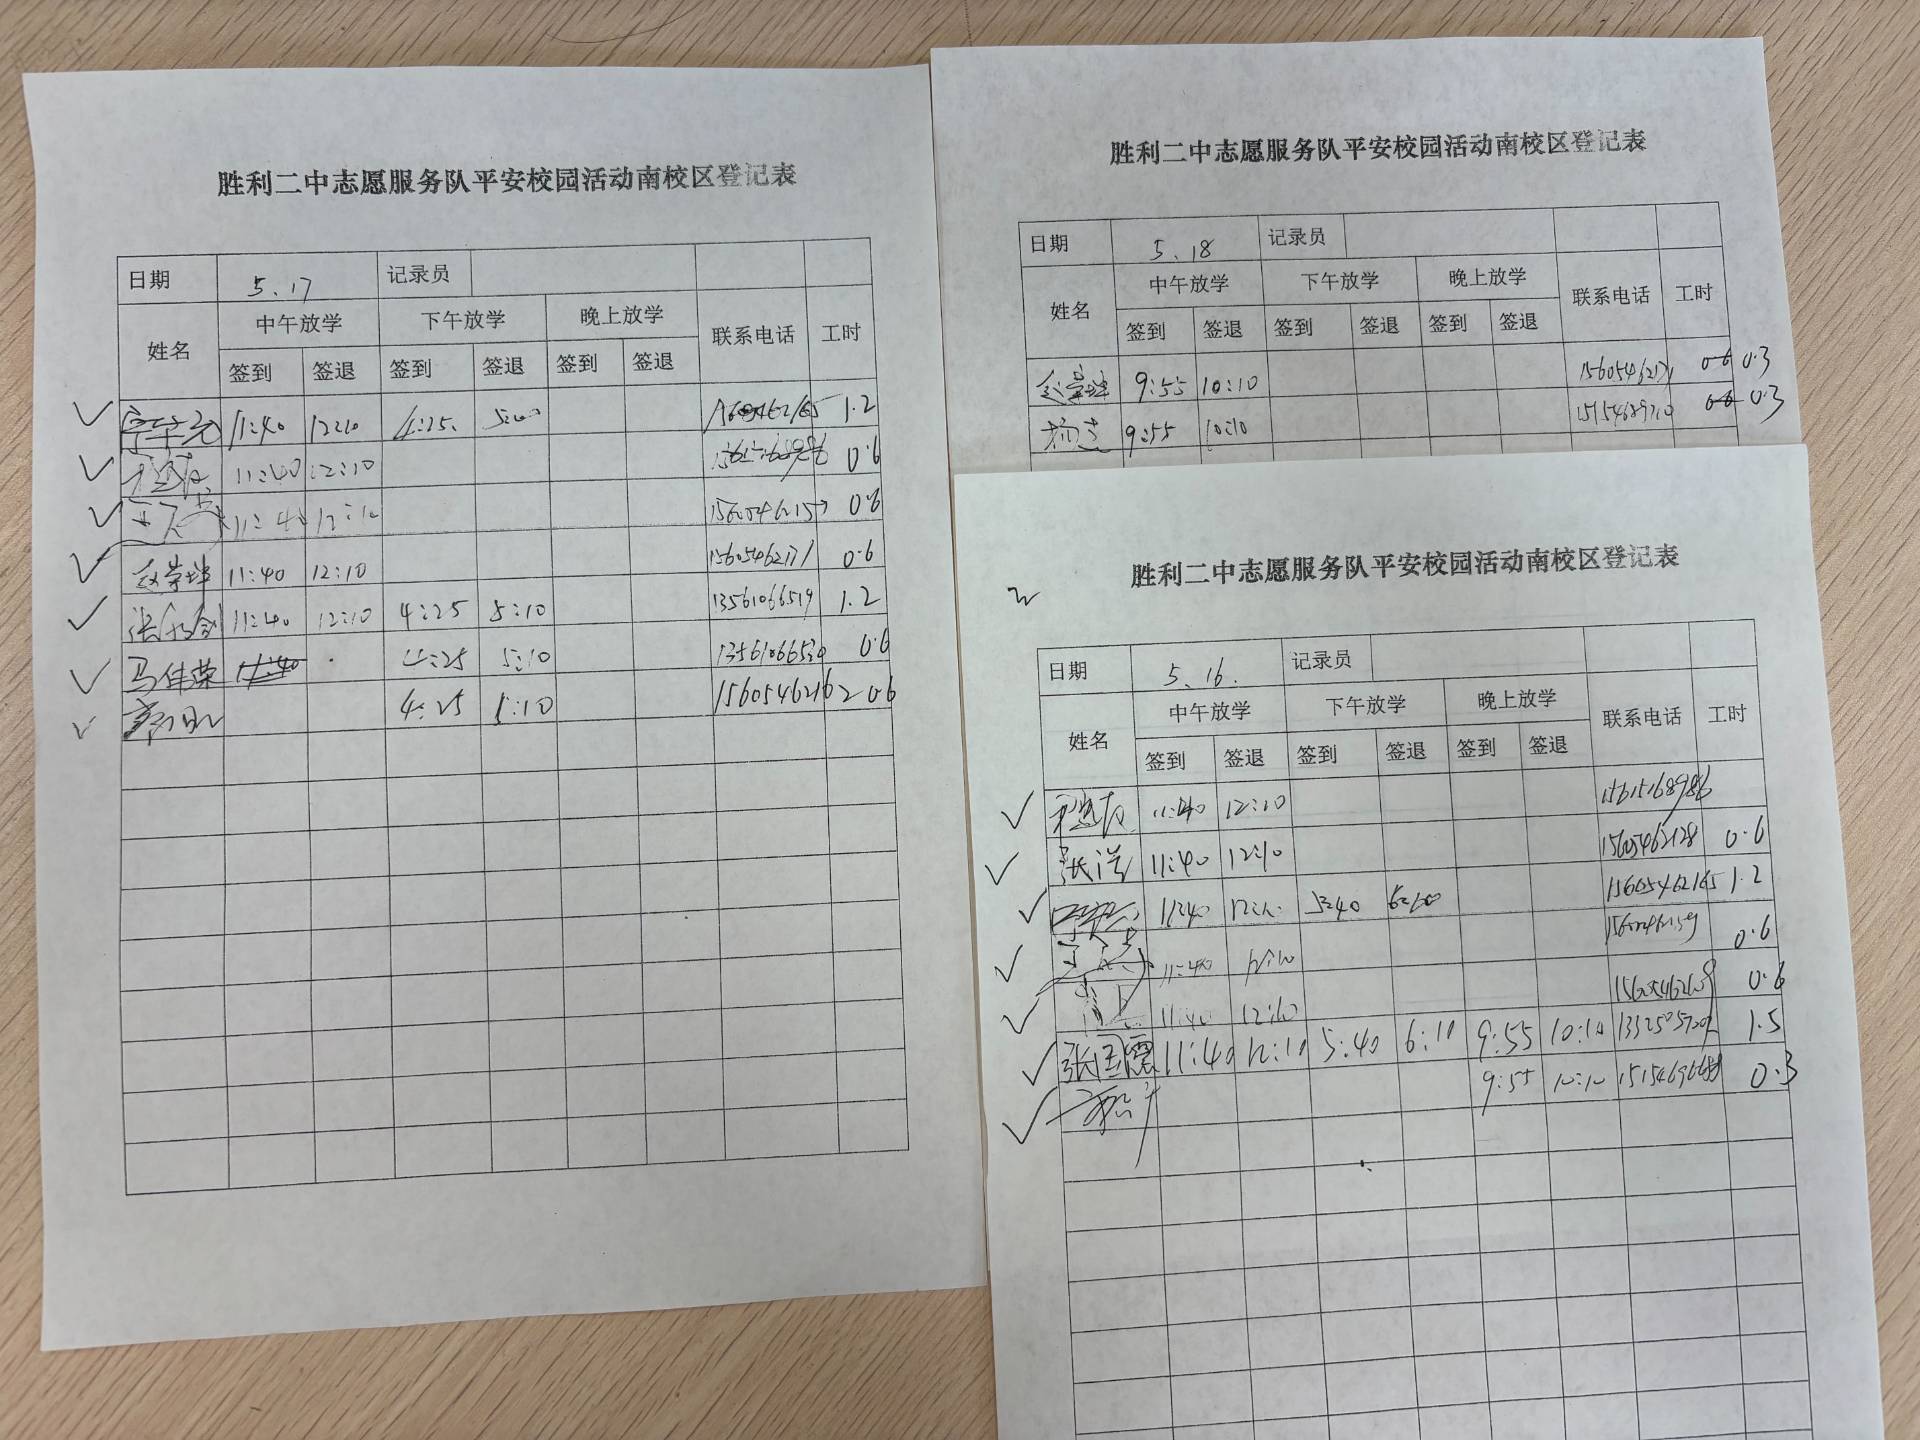 胜利二中志愿服务队平安校园活动南校区登记表
日期 5.17 记录员
姓名 中午放学 下午放学 晚上放学 联系电话 工时
签到 签退 签到 签退 签到 签退
11:40 12:10 4:25 5:00 1.2
11:40 12:10 0.6
11:40 12:10 0.6
赵荣坤 11:40 12:10 15605462171 0.6
11:40 12:10 4:25 5:10 13561066519 1.2
马佳荣 11:40 4:25 5:10 13561066530 0.6
4:25 5:10 15605462162 0.6
胜利二中志愿服务队平安校园活动南校区登记表
日期 5.18 记录员
姓名 中午放学 下午放学 晚上放学 联系电话 工时
签到 签退 签到 签退 签到 签退
赵荣坤 9:55 10:10 15605462171 0.6 0.3
9:55 10:10 0.6 0.3
胜利二中志愿服务队平安校园活动南校区登记表
日期 5.16. 记录员
姓名 中午放学 下午放学 晚上放学 联系电话 工时
签到 签退 签到 签退 签到 签退
11:40 12:10 15615168986
张洋 11:40 12:10 15605462128 0.6
11:40 12:10 5:40 6:10 15605462165 1.2
11:40 12:10 0.6
11:40 12:10 0.6
张国震 11:40 12:10 5:40 6:10 9:55 10:10 1.5
9:55 10:10 0.3